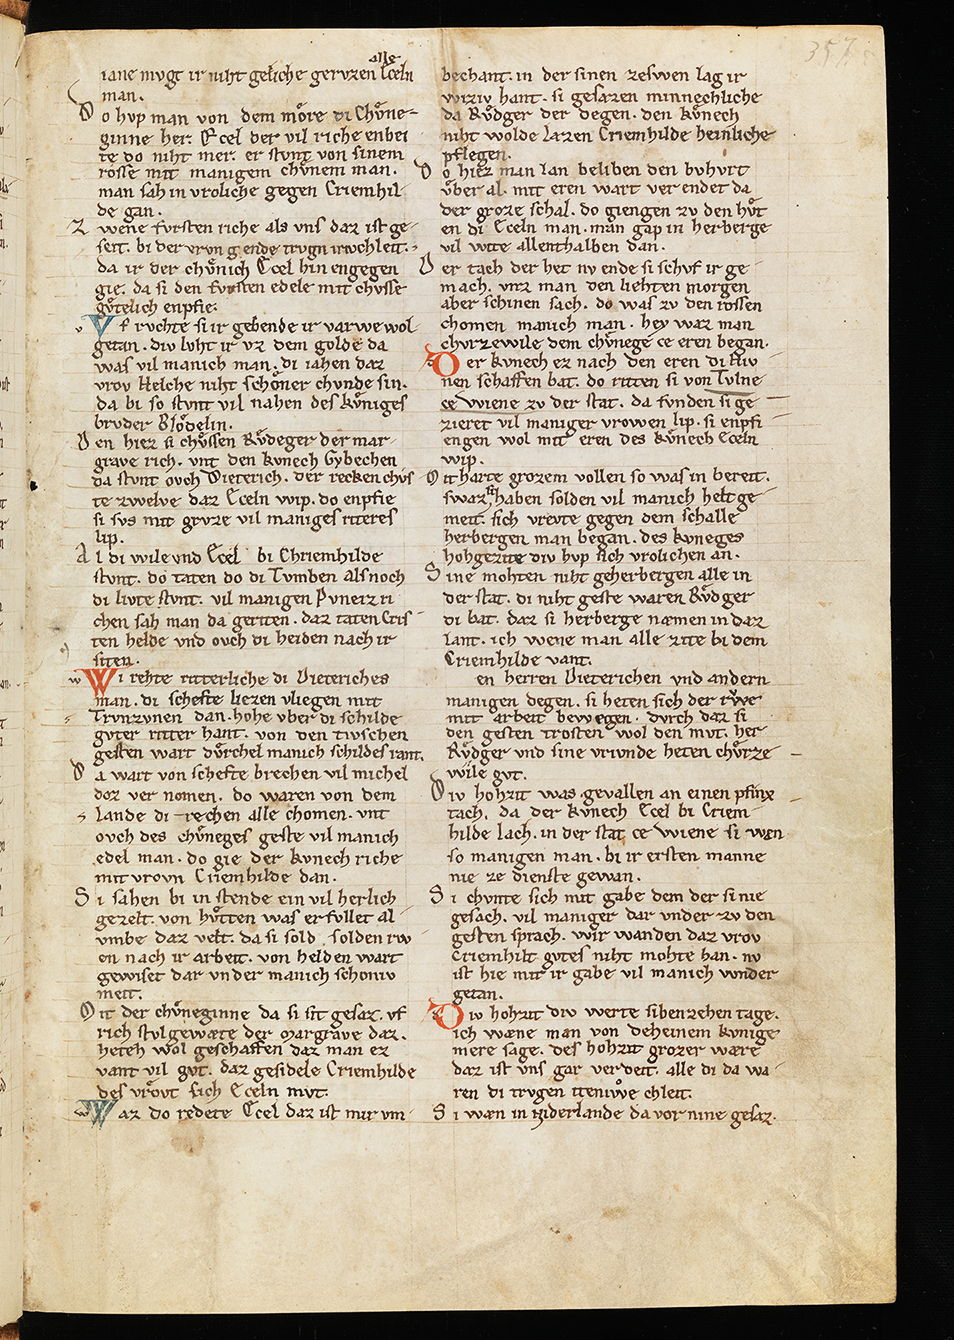 357
alle
iane mvgt ir niht geliche gervzen Eceln
man.
Do hvp man von dem moͤre di Chvͤne-
ginne her. Ecel der vil riche enbei
te do niht mer. er stvnt von sinem
rosse mit manigem chvͤnem man.
man sah in vroliche gegen Criemhil-
de gan.
Zwene fvrsten riche als vns daz ist ge-
seit. bi der vrovn gende trvgn irwchleit.
da ir der chvͤnich Ecel hin engegen
gie. da si den fvrsten edele mit chvsse
gvͤtelich enpfie.
Vf rvchte si ir gebende ir varwe wol
getan. div lvht ir vz dem golde da
was vil manich man. di iahen daz
vrov Helche niht schoͤner chvnde sin.
da bi so stvnt vil nahen des kvͤniges
brvder Bloͤdelin.
Den hiez si chvͤssen Rvͤdeger der mar-
grave rich. vnt den kvnech Gybechen
da stvnt ovch Dieterich. der recken chvs
te zwelve daz Eceln wip. do enpfie
si svs mit grvze vil maniges riteres
lip.
Al di wile vnd Ecel bi Chriemhilde
stvnt. do taten do di Tvmben als noch
di livte stvnt. vil manigen Pvneiz ri
chen sah man da geriten. daz taten Cris
ten helde vnd ovch di heiden nach ir
siten.
Wi rehte ritterliche di Dieteriches
man. di schefte liezen vliegen mit
Trvnzvnen dan. hohe vber di schilde
gvter ritter hant. von den tivschen
gesten wart dvͤrchel manich schildes rant.
Da wart von schefte brechen vil michel
doz ver nomen. do waren von dem
lande di rechen alle chomen. vnt
ovch des chvͤneges geste vil manich
edel man. do gie der kvnech riche
mit vrovn Criemhilde dan.
Si sahen bi in stende ein vil herlich
gezelt. von hvͤtten was erfvllet al
vmbe daz velt. da si sold solden rw
en nach ir arbeit. von helden wart
gewiset dar vnder manich schoniv
meit.
Mit der chvͤneginne da si sit gesaz. vf
rich stvlgewæte der Margrave daz.
heteh wol geschaffen daz man ez
vant vil gvt. daz gesidele Criemhilde
des vroͮt sich Eceln mvt.
Waz do redete Ecel daz ist mir vm-
bechant. in der sinen zeswen lag ir
wiziv hant. si gesazen minnechliche
da Rvͤdger der degen. den kvͤnech
niht wolde lazen Criemhilde heinliche
pflegen.
Do hiez man lan beliben den bvhvrt
vͤber al. mit eren wart ver endet da
der groze schal. do giengen zv den hvͤt
en di Eceln man. man gap in herberge
vil wite allenthalben dan.
Der tach der het nv ende si schvf ir ge
mach. vnz man den liehten morgen
aber schinen sach. do was zv den rossen
chomen manich man. hey waz man
chvrzewile dem chvͤnege ce eren began.
Der kvnech ez nach den eren di Hiv
nen schaffen bat. do ritten si von Tvlne
ce Wiene zv der stat. da fvnden si ge
zieret vil maniger vrowen lip. si enpfi
engen wol mit eren des kvͤnech Eceln
wip.
Mit harte grozem vollen so was in bereit.
swaz haben solden vil manich helt ge
meit. sich vrevte gegen dem schalle
herbergen man began. des kvneges
hohgezite div hvp sich vrolichen an.
Sine mohten niht geherbergen alle in
der stat. di niht geste waren Rvͤdger
di bat. daz si herberge næmen in daz
lant. ich wene man alle zite bi dem
Criemhilde vant.
en herren Dieterichen vnd andern
manigen degen. si heten sich der rvͤwe
mit arbeit bewegen. dvrch daz si
den gesten trosten wol den mvt. her
Rvͤdger vnd sine vrivnde heten chvͤrze
wile gvt.
Div hohzit was gevallen an einen pfinx
tach. da der kvnech Ecel bi Criem
hilde lach. in der stat ce Wiene si wæn
so manigen man. bi ir ersten manne
nie ze dienste gewan.
Si chvnte sich mit gabe dem der si nie
gesach. vil maniger dar vnder zv den
gesten sprach. wir wanden daz vrov
Criemhilt gvtes niht mohte han. nv
ist hie mit ir gabe vil manich wnder
getan.
Div hohzit div werte sibenzehen tage.
ich wæne man von deheinem kvnige
mere sage. des hohzit grozer wære
daz ist vns gar verdeit. alle di da wa
ren di trvgen iteniwͦe chleit.
Si wæn in Niderlande da vor nine gesaz.